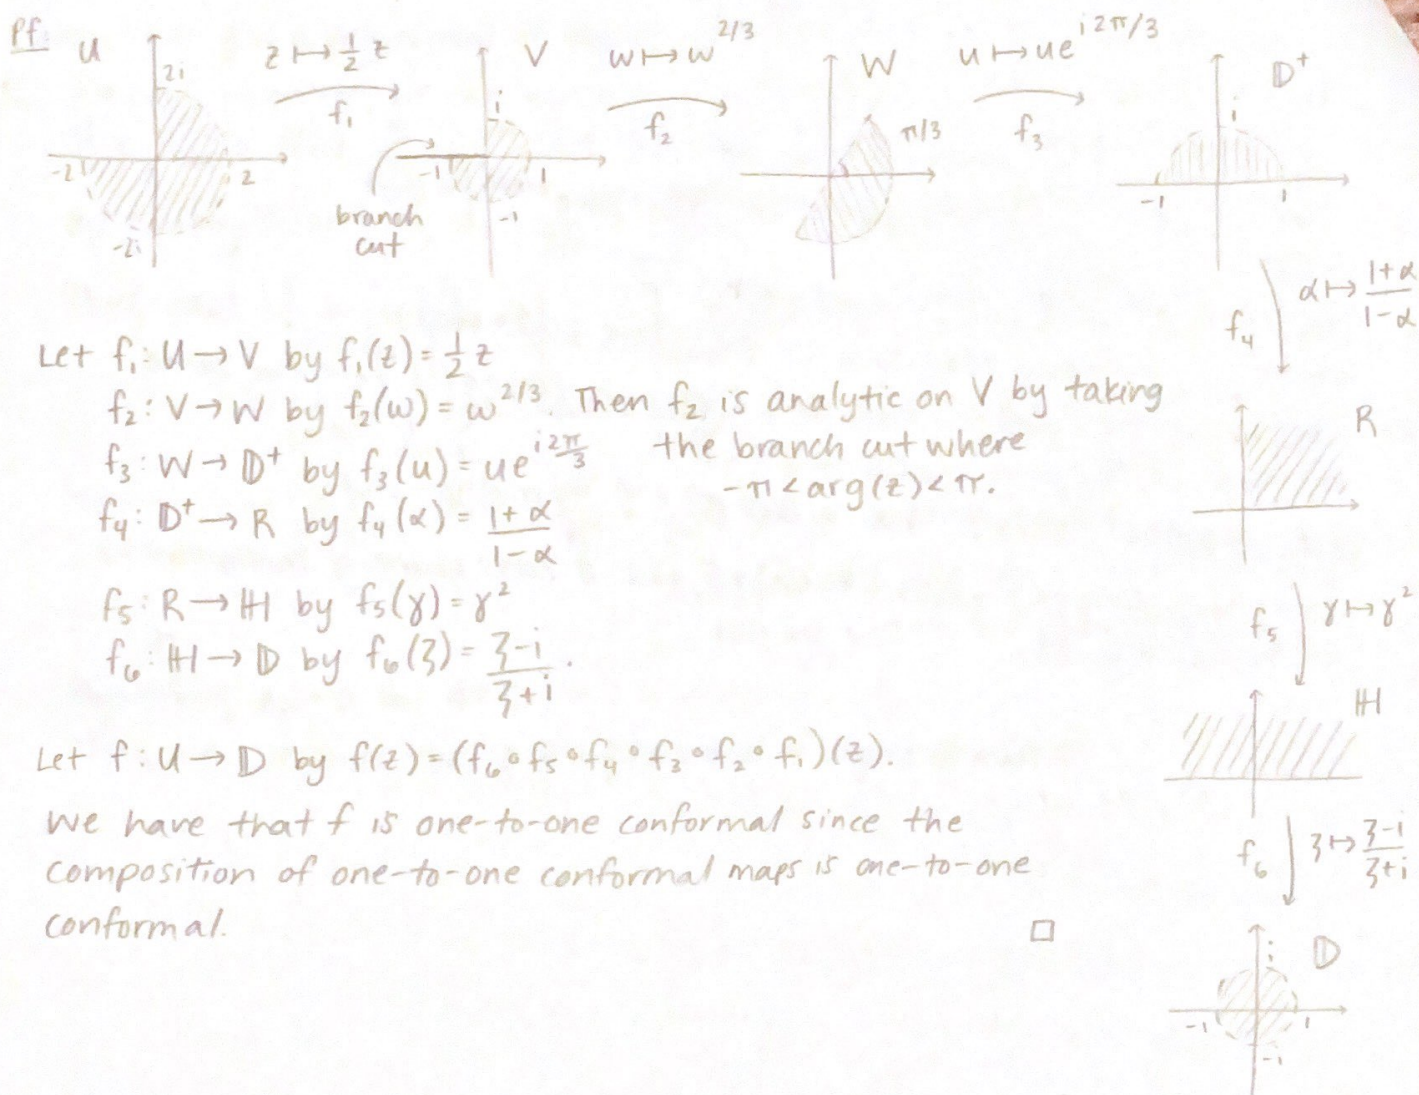 Pf:
U 2i -2 2 -2i
z ↦ ½ z
f₁
V i -1 1 -1
branch
cut
w ↦ w^{2/3}
f₂
W π/3
u ↦ ue^{i2π/3}
f₃
𝔻⁺ i -1 1
f₄ α ↦ \frac{1+α}{1-α}
R
f₅ γ ↦ γ²
ℍ
f₆ ζ ↦ \frac{ζ-i}{ζ+i}
𝔻 i -1 1 -i
Let f₁: U → V by f₁(z) = ½ z
f₂: V → W by f₂(w) = w^{2/3}. Then f₂ is analytic on V by taking
the branch cut where
-π < arg(z) < π.
f₃: W → 𝔻⁺ by f₃(u) = ue^{i\frac{2π}{3}}
f₄: 𝔻⁺ → R by f₄(α) = \frac{1+α}{1-α}
f₅: R → ℍ by f₅(γ) = γ²
f₆: ℍ → 𝔻 by f₆(ζ) = \frac{ζ-i}{ζ+i}.
Let f: U → 𝔻 by f(z) = (f₆∘f₅∘f₄∘f₃∘f₂∘f₁)(z).
We have that f is one-to-one conformal since the
composition of one-to-one conformal maps is one-to-one
conformal. □